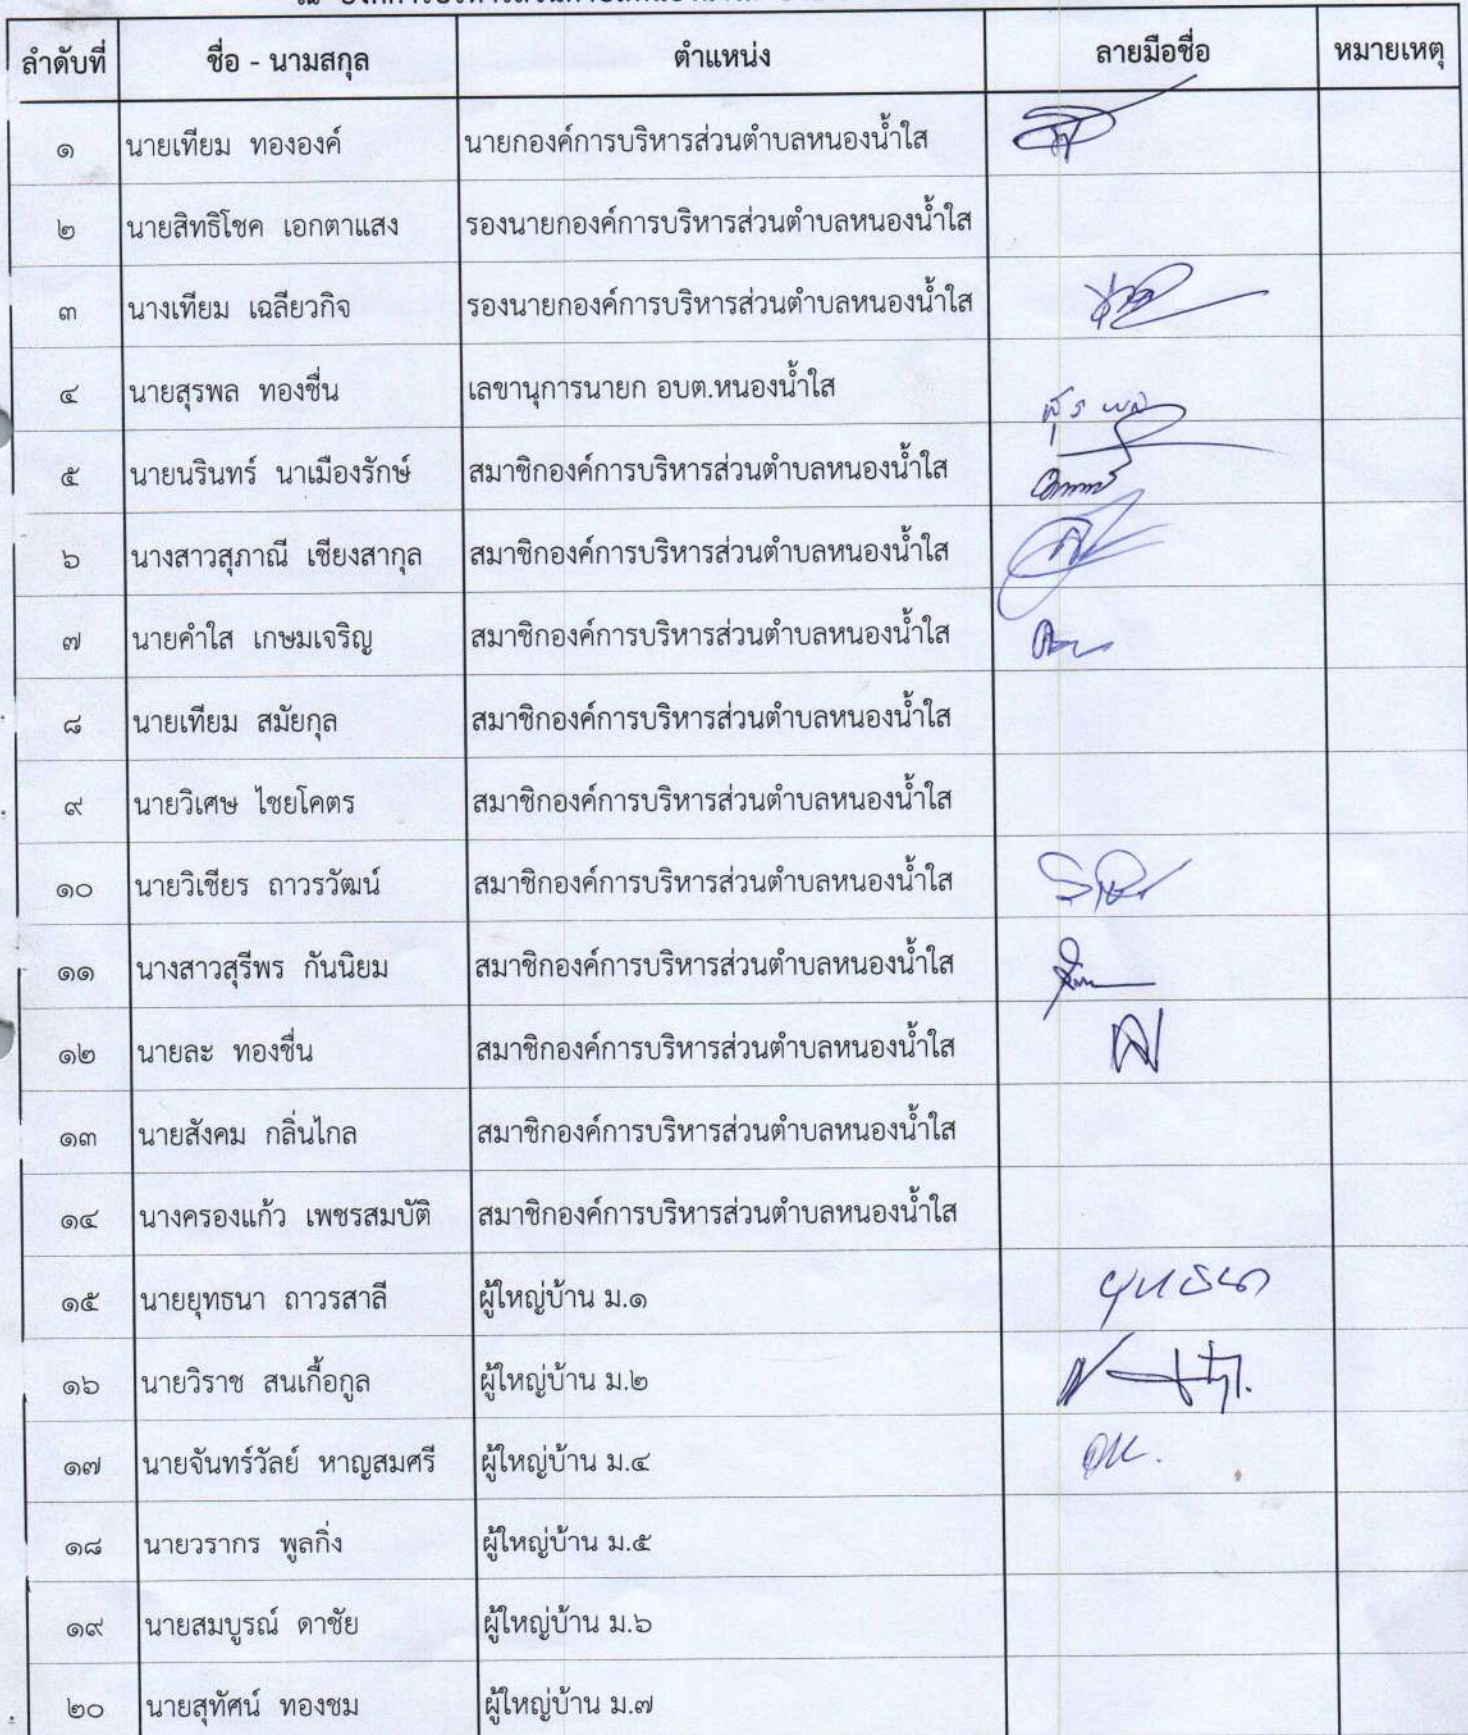 ลำดับที่ ชื่อ - นามสกุล ตำแหน่ง ลายมือชื่อ หมายเหตุ
๑ นายเทียม ทององค์ นายกองค์การบริหารส่วนตำบลหนองน้ำใส
๒ นายสิทธิโชค เอกตาแสง รองนายกองค์การบริหารส่วนตำบลหนองน้ำใส
๓ นางเทียม เฉลียวกิจ รองนายกองค์การบริหารส่วนตำบลหนองน้ำใส
๔ นายสุรพล ทองชื่น เลขานุการนายก อบต.หนองน้ำใส สุรพล
๕ นายนรินทร์ นาเมืองรักษ์ สมาชิกองค์การบริหารส่วนตำบลหนองน้ำใส
๖ นางสาวสุภาณี เชียงสากุล สมาชิกองค์การบริหารส่วนตำบลหนองน้ำใส
๗ นายคำใส เกษมเจริญ สมาชิกองค์การบริหารส่วนตำบลหนองน้ำใส
๘ นายเทียม สมัยกุล สมาชิกองค์การบริหารส่วนตำบลหนองน้ำใส
๙ นายวิเศษ ไชยโคตร สมาชิกองค์การบริหารส่วนตำบลหนองน้ำใส
๑๐ นายวิเชียร ถาวรวัฒน์ สมาชิกองค์การบริหารส่วนตำบลหนองน้ำใส
๑๑ นางสาวสุรีพร กันนิยม สมาชิกองค์การบริหารส่วนตำบลหนองน้ำใส
๑๒ นายละ ทองชื่น สมาชิกองค์การบริหารส่วนตำบลหนองน้ำใส
๑๓ นายสังคม กลิ่นไกล สมาชิกองค์การบริหารส่วนตำบลหนองน้ำใส
๑๔ นางครองแก้ว เพชรสมบัติ สมาชิกองค์การบริหารส่วนตำบลหนองน้ำใส
๑๕ นายยุทธนา ถาวรสาลี ผู้ใหญ่บ้าน ม.๑ ยุทธนา
๑๖ นายวิราช สนเกื้อกูล ผู้ใหญ่บ้าน ม.๒
๑๗ นายจันทร์วัลย์ หาญสมศรี ผู้ใหญ่บ้าน ม.๔
๑๘ นายวรากร พูลกิ่ง ผู้ใหญ่บ้าน ม.๕
๑๙ นายสมบูรณ์ ดาชัย ผู้ใหญ่บ้าน ม.๖
๒๐ นายสุทัศน์ ทองชม ผู้ใหญ่บ้าน ม.๗